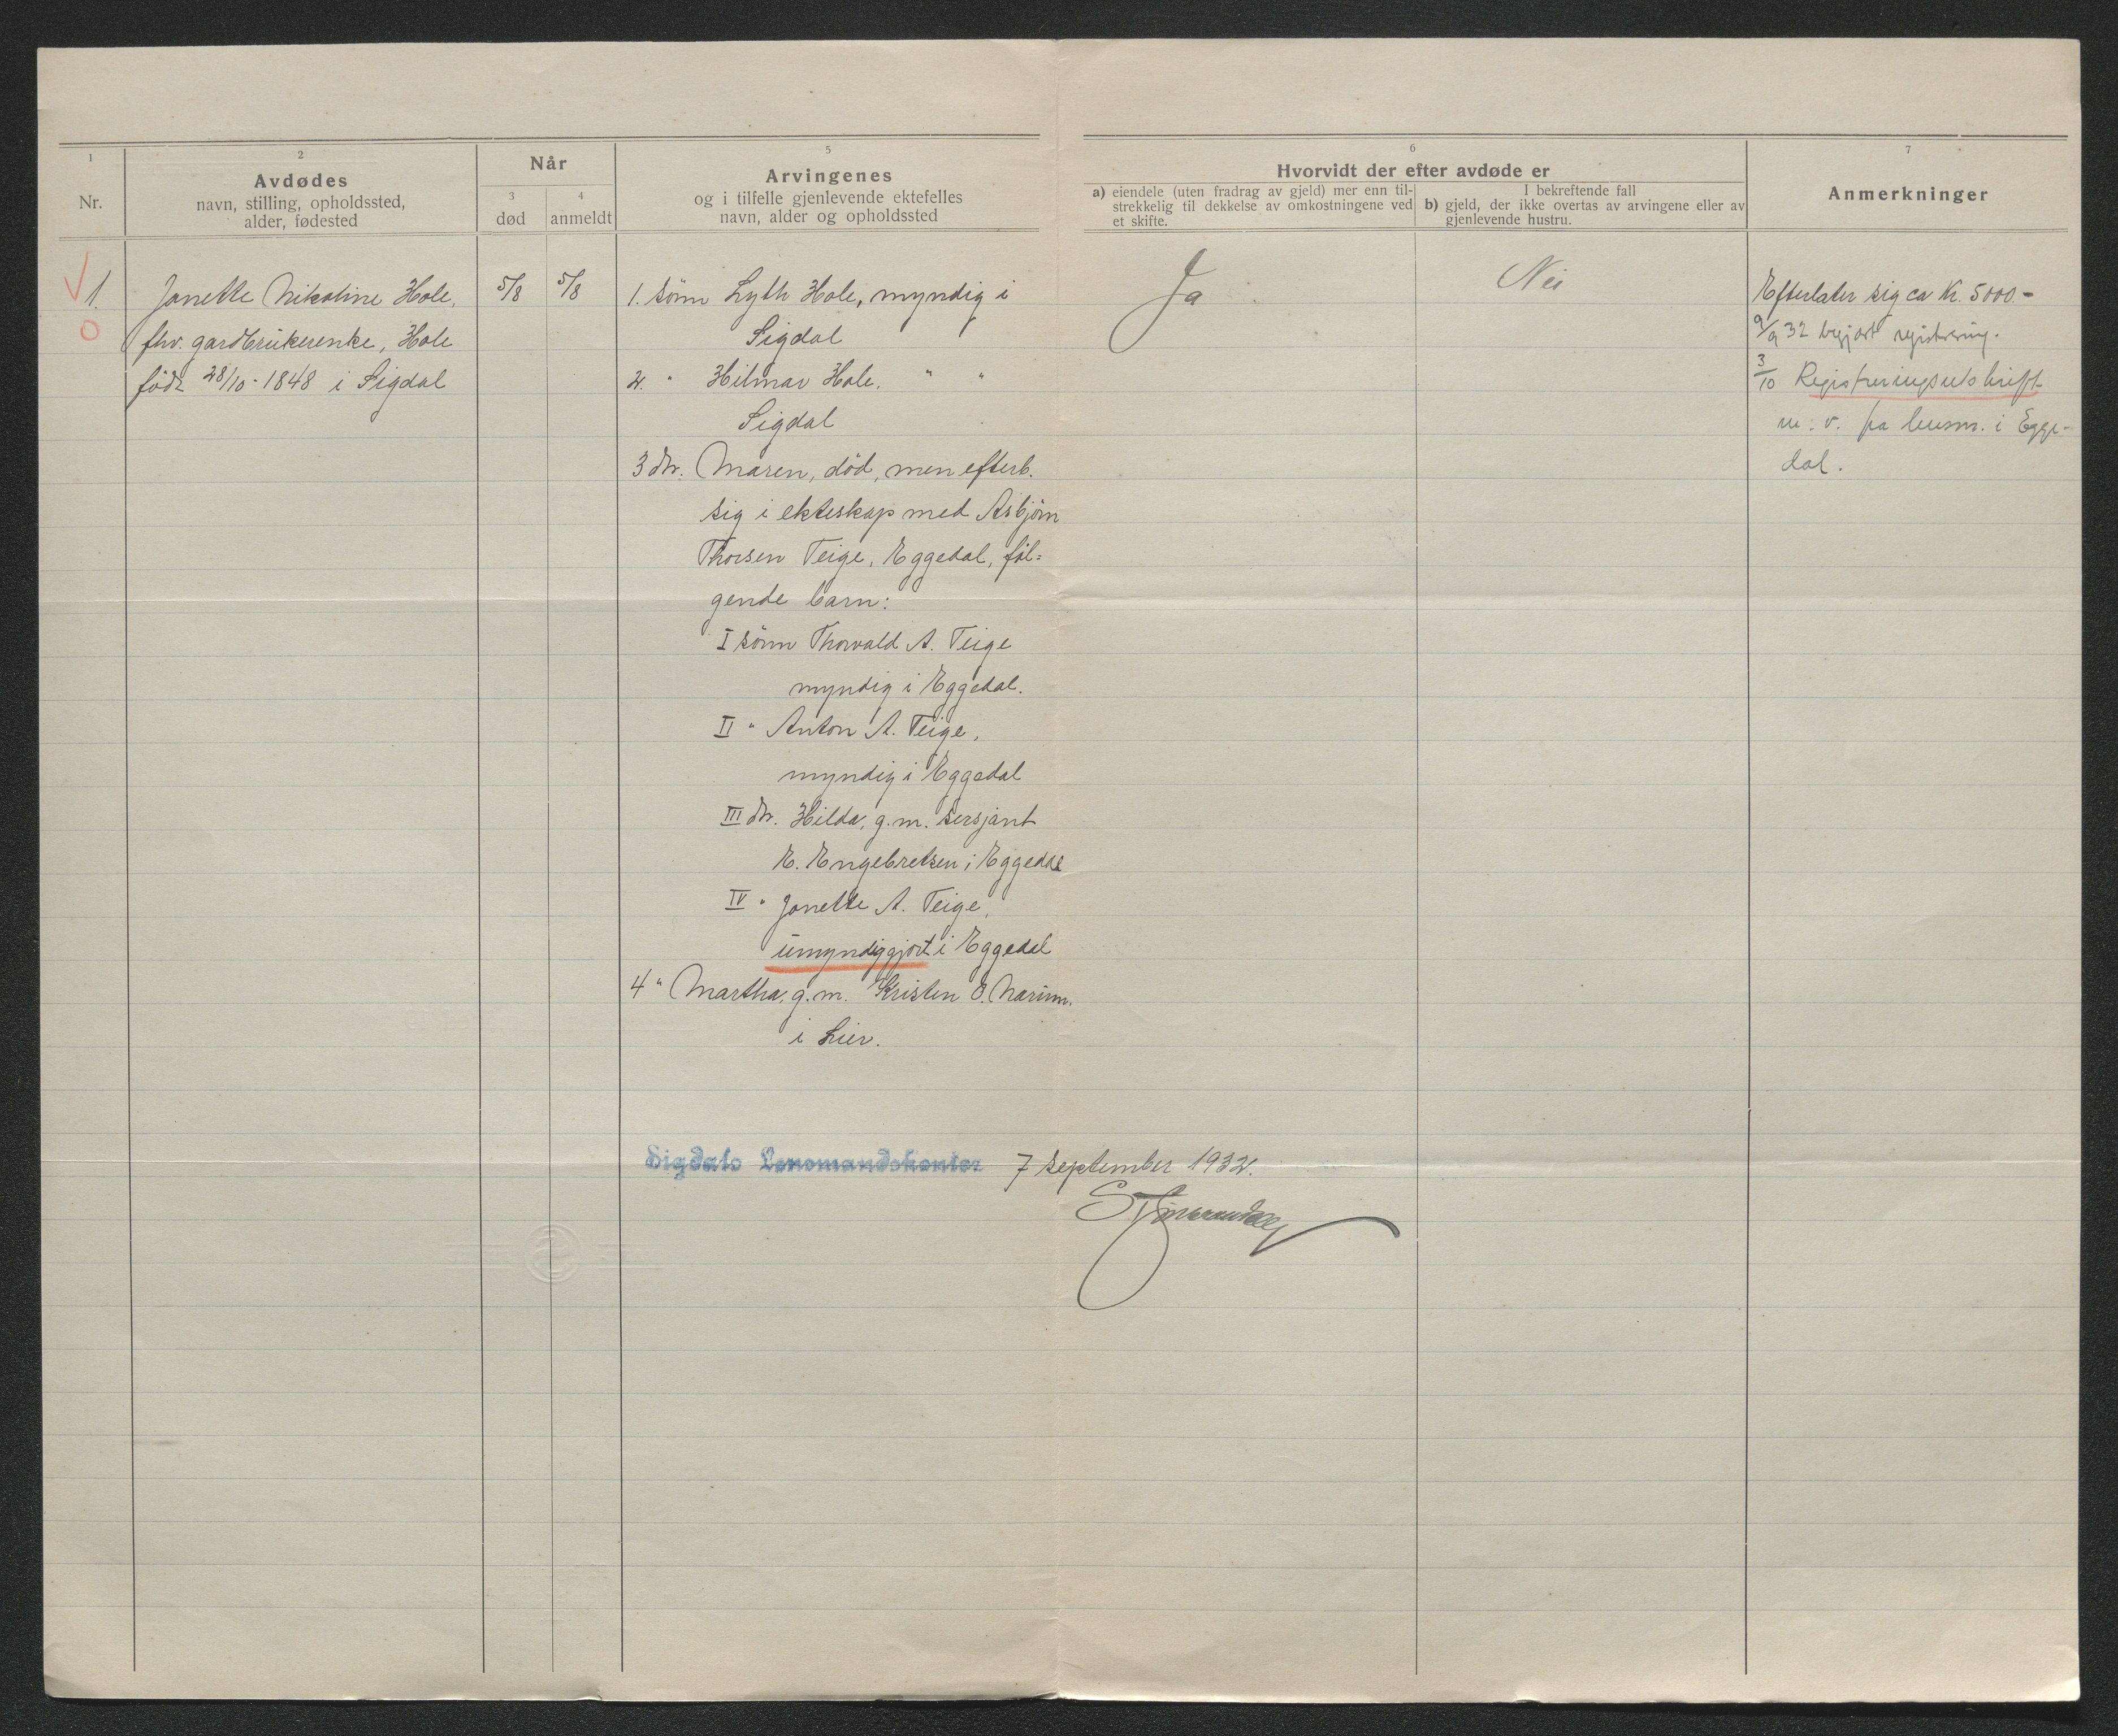 1
Nr.
2
Avdødes
navn, stilling, opholdssted,
alder, fødested
Når
3
død
4
anmeldt
5
Arvingenes
og i tilfelle gjenlevende ektefelles
navn, alder og opholdssted
6
Hvorvidt der efter avdøde er
a) eiendele (uten fradrag av gjeld) mer enn til-
strekkelig til dekkelse av omkostningene ved
et skifte.
I bekreftende fall
b) gjeld, der ikke overtas av arvingene eller av
gjenlevende hustru.
7
Anmerkninger
1.
Janette Nikoline Hole,
fhv. gardbrukerenke, Hole
født 28/10-1848 i Sigdal
5/8
5/8
1. sönn Lyth Hole, myndig i
Sigdal
2. " Hilmar Hole, " "
Sigdal
3 dtr. Maren, död, men efterl.
sig i ekteskap med Asbjörn
Thorsen Teige, Eggedal, föl=
gende barn:
I sönn Thorvald A. Teige
myndig i Eggedal.
II " Anton A. Teige,
myndig i Eggedal
III dtr. Hilda, g.m. sersjant
E. Engebretsen i Eggedal
IV " Janette A. Teige,
umyndiggjort i Eggedal
4 " Martha, g.m. Kristen O. Narum.
i Lier.
Ja
Nei
Efterlater sig ca Kr. 5000.-
9/9 32 begjært registrering.
3/10 Registreringsutskrift
m. v. fra lensm. i Egge-
dal.
Sigdals Lensmandskontor 7 september 1932.